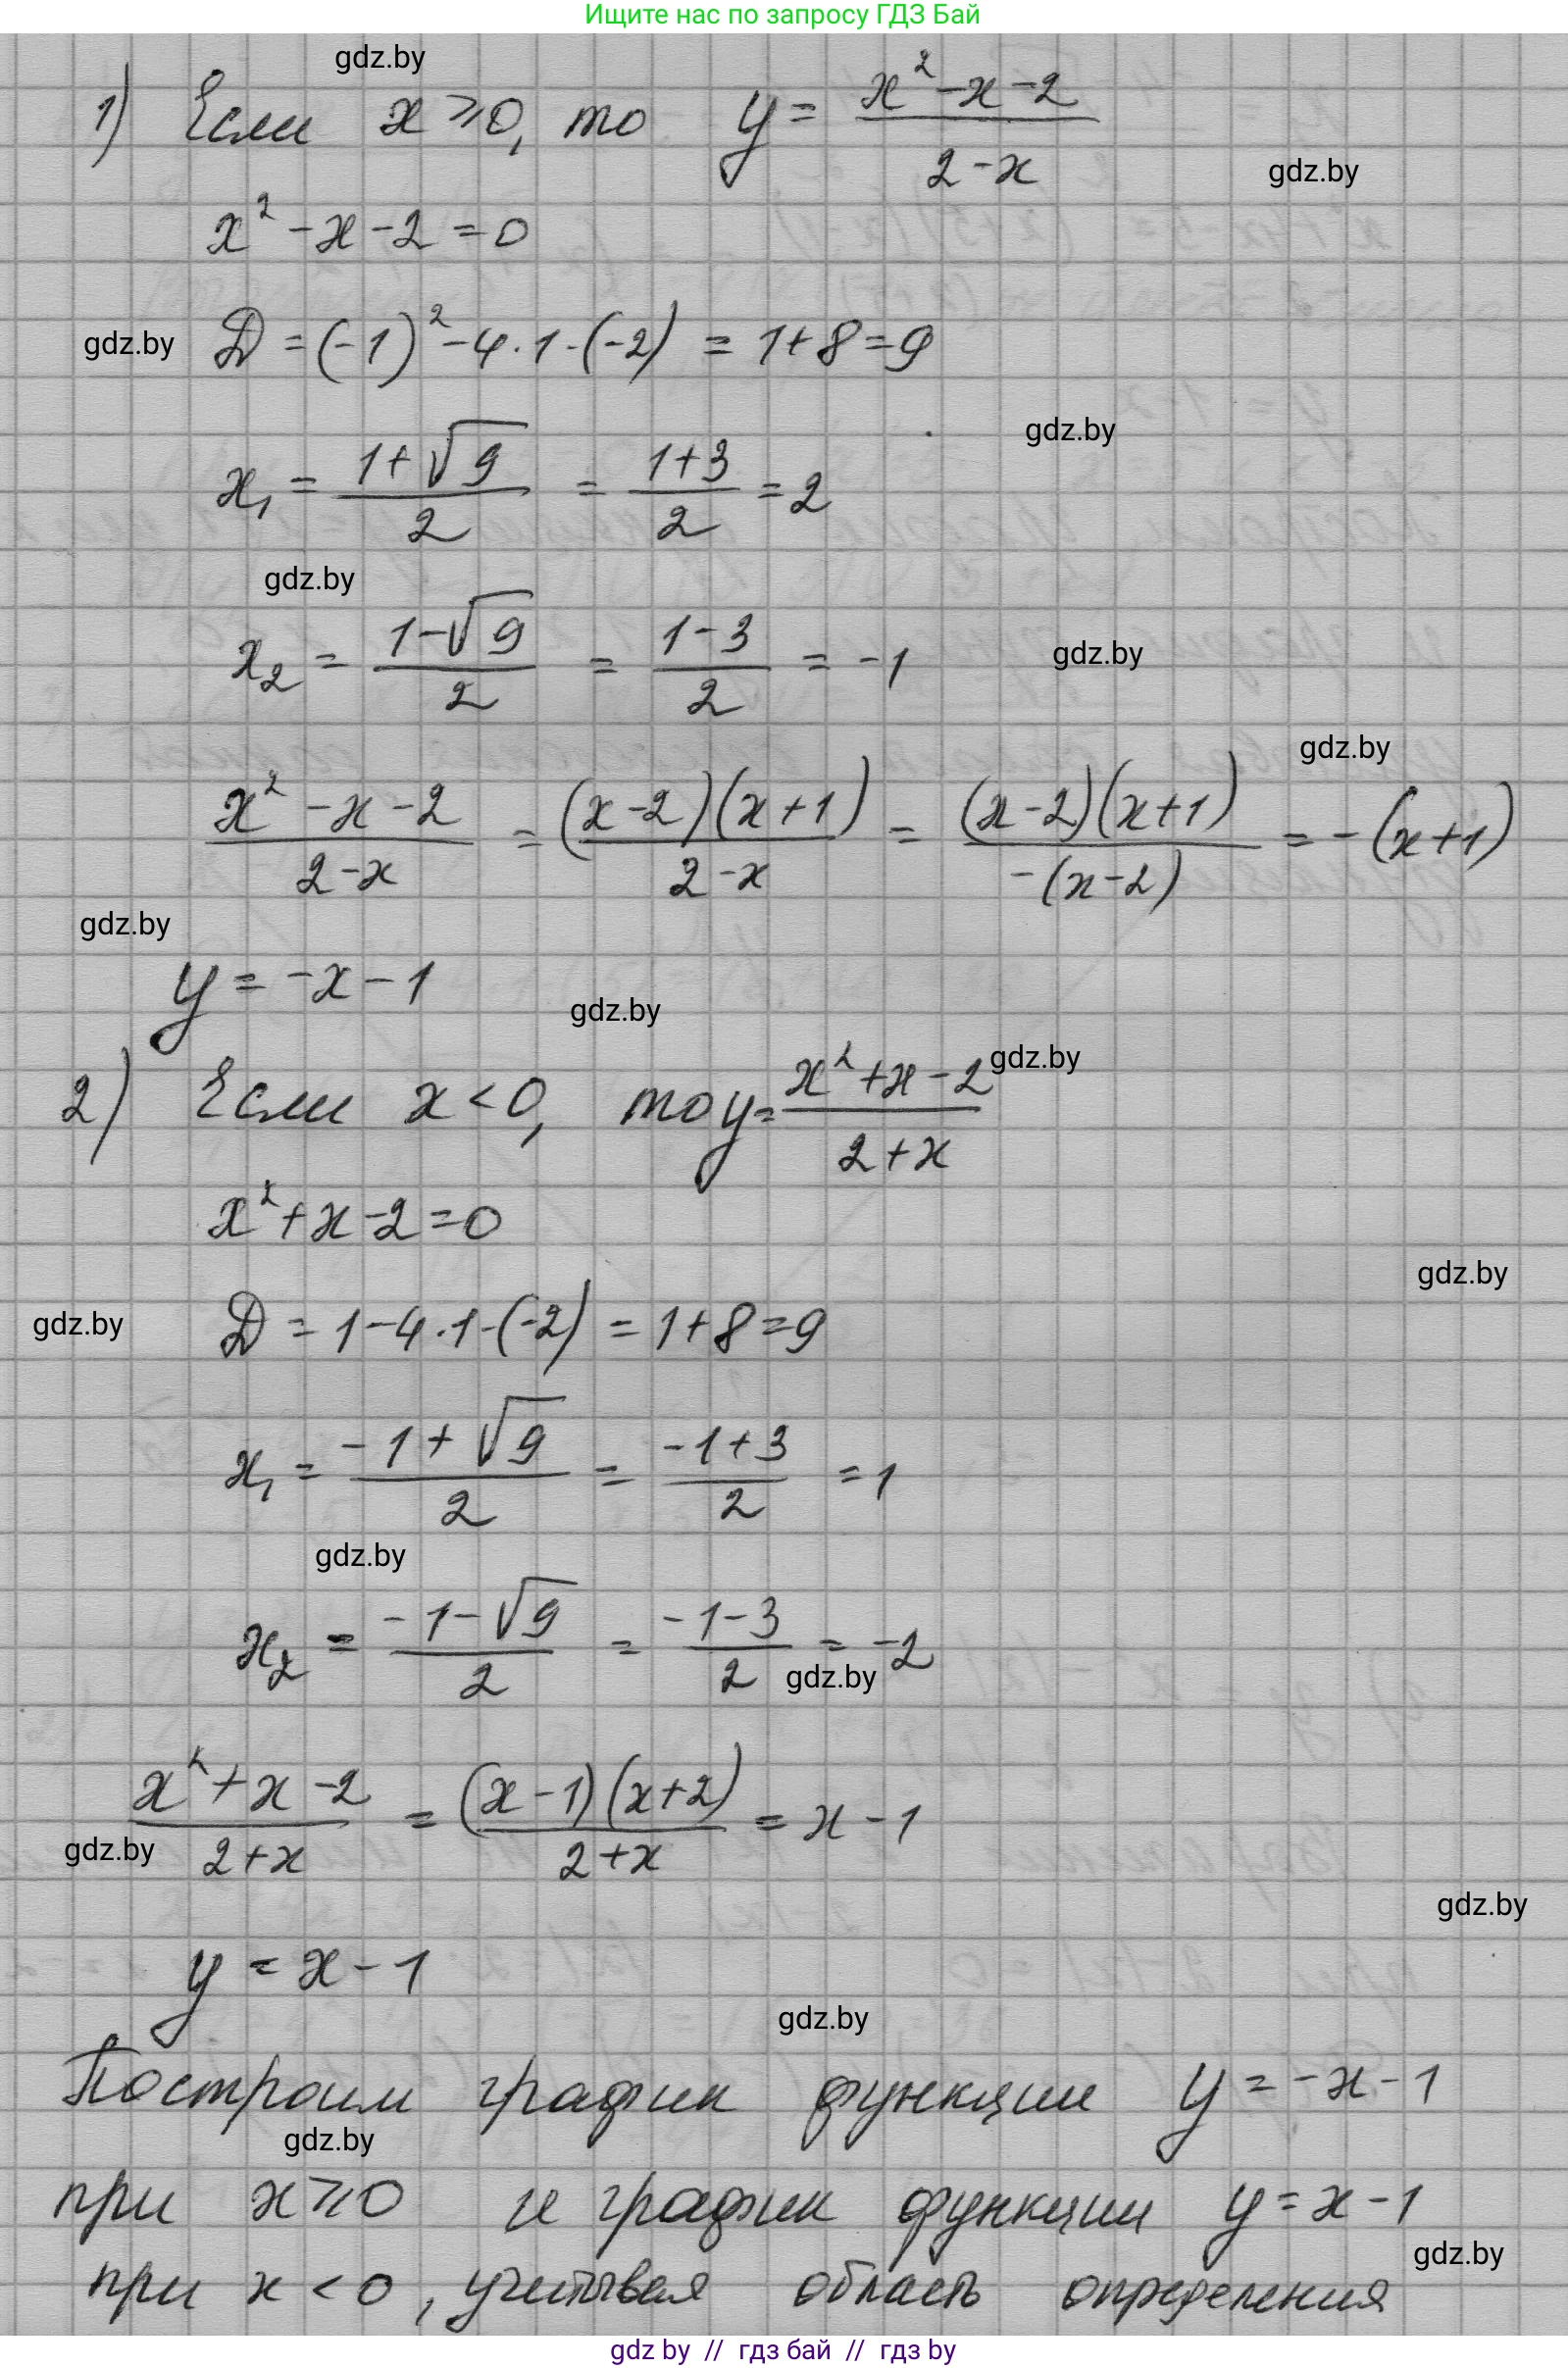 Ищите нас по запросу ГДЗ Бай
gdz.by
1) Если x ≥ 0, то y = (x² - x - 2)/(2 - x)
gdz.by
x² - x - 2 = 0
gdz.by
D = (-1)² - 4 · 1 · (-2) = 1 + 8 = 9
gdz.by
x₁ = (1 + √9)/2 = (1 + 3)/2 = 2
gdz.by
x₂ = (1 - √9)/2 = (1 - 3)/2 = -1
gdz.by
gdz.by
(x² - x - 2)/(2 - x) = ((x - 2)(x + 1))/(2 - x) = ((x - 2)(x + 1))/(-(x - 2)) = -(x + 1)
gdz.by
y = -x - 1
gdz.by
2) Если x < 0, то y = (x² + x - 2)/(2 + x)
gdz.by
x² + x - 2 = 0
gdz.by
gdz.by
D = 1 - 4 · 1 · (-2) = 1 + 8 = 9
x₁ = (-1 + √9)/2 = (-1 + 3)/2 = 1
gdz.by
x₂ = (-1 - √9)/2 = (-1 - 3)/2 = -2
gdz.by
(x² + x - 2)/(2 + x) = ((x - 1)(x + 2))/(2 + x) = x - 1
gdz.by
gdz.by
y = x - 1
gdz.by
Построим график функции y = -x - 1
gdz.by
при x ≥ 0 и график функции y = x - 1
gdz.by
при x < 0, учитывая область определения
gdz by // гдз бай // гдз by